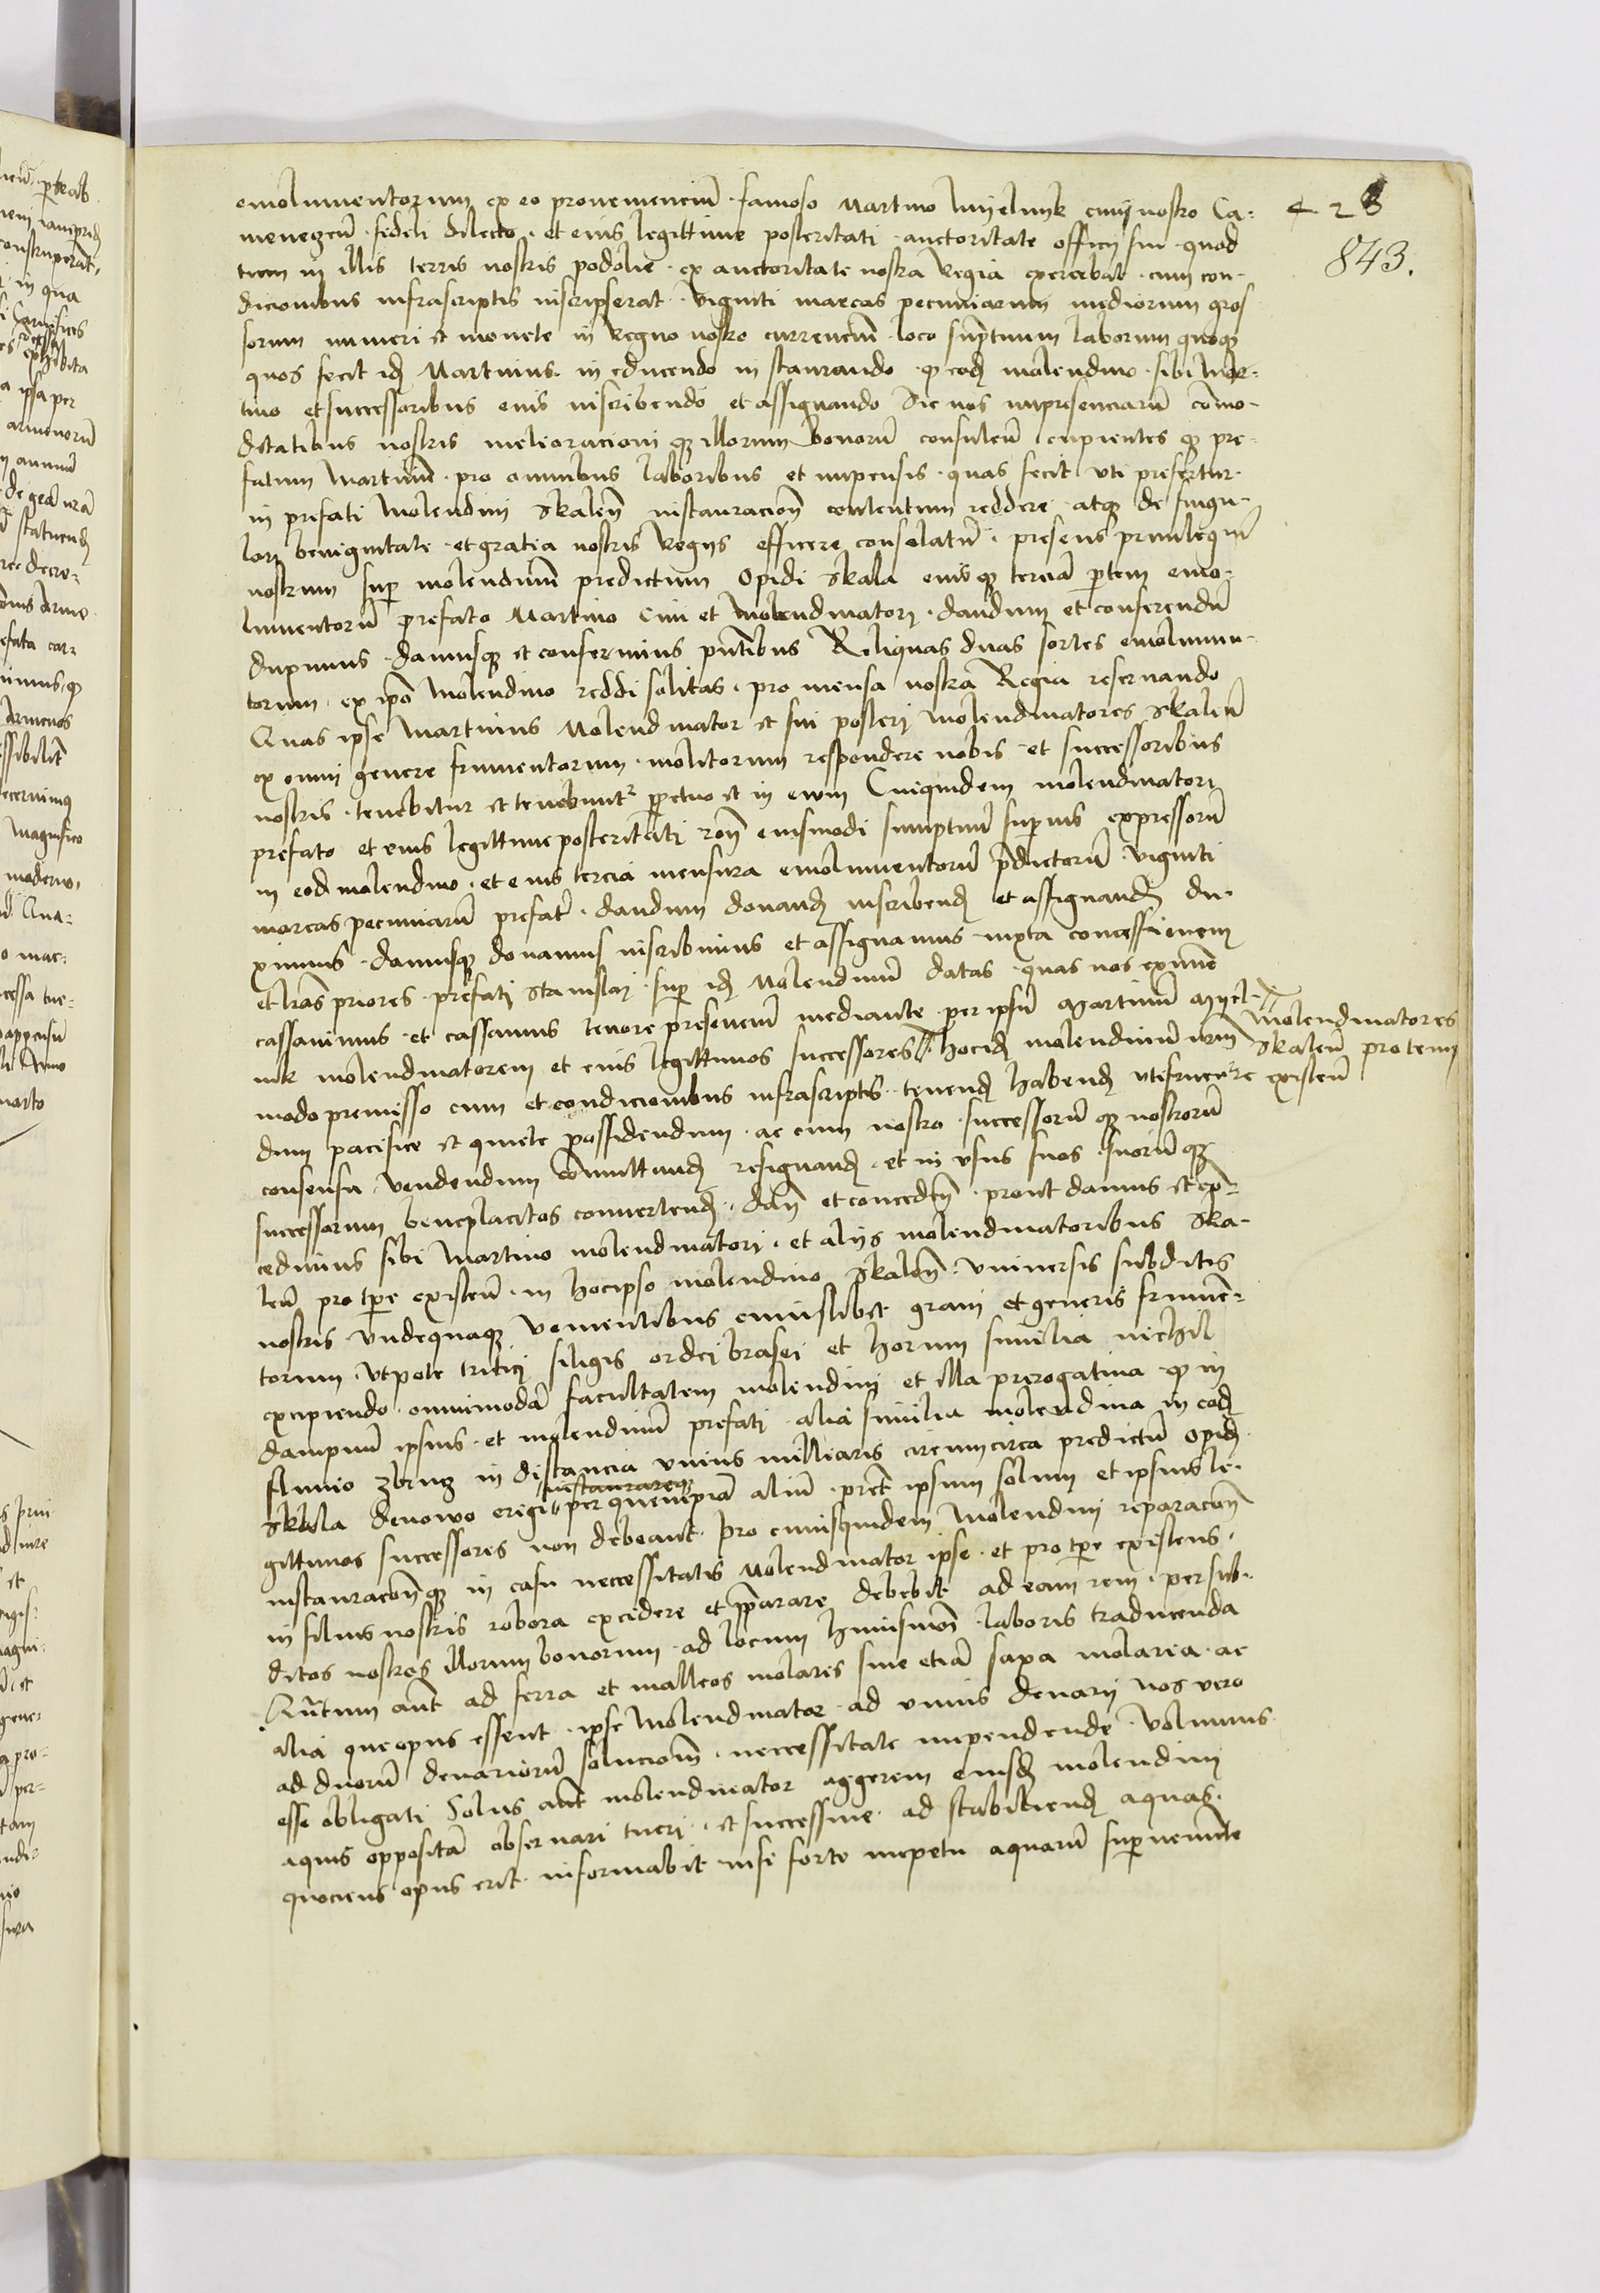 428
843.
emolumentorum ex eo proueniencium famoso Martino Myelnyk ciui nostro Ca-
menegecn̄ fideli dilecto et eius legittime posteritati auctoritate officij sui quod
tum in illis terris nostris podolie ex auctoritate nostra Regia exercebat cum con-
dicionibus infrascriptis inscripserat viginti marcas pecuniarum mediorum gros
sorum numeri et monete in Regno nostro currenciū loco sumptuum laborum quoque
quos fecit idem Martinus in educendo instaurando eodem molendino sibi Mar-
tino et successoribus eius inscribendo et assignando Sic nos impresenciarū commo-
ditatibus nostris melioracionique illorum bonorū consulen̄ cupientesque pre-
fatum Martinū pro omnibus laboribus et impensis quas fecit vti prefertur
in prefati Molendini Skalen̄ instauracione contentum reddere atque de singu-
lari benignitate et gratia nostris Regijs efficere consolatū presens priuilegiū
nostrum super molendinū predictum Opidi Skala eiusque terciā partem emo-
lumentorū prefato Martino Ciui et Molendinatori dandum et conferendū
duximus damusque et conferimus presentibus Reliquas duas sortes emolumen-
torum ex ipso Molendino reddi solitas pro mensa nostra Regia reseruando
Quas ipse Martinus Molendinator et sui posteri Molendinatores Skalen̄
ex omni genere frumentorum molitorum respondere nobis et successoribus
nostris tenebitur et tenebuntur perpetuo et in ewm Cuiquidem molendinatori
prefato et eius legittime posteritati ron̄e eiusmodi sumptuū superius expressorū
in eod molendino et eius tercia mensura emolumentorū predictorū viginti
marcas pecuniarū prefatar̄ dandum donand inscribend et assignand du-
ximus damusque donamus inscribimus et assignamus iuxta concessionem
et lrās priores prefati Stanislai super id Molendinū datas quas nos ex nunc
cassauimus et cassamus tenore presenciū mediante per ipsū Martinū Myel-
nik molendinatorem et eius legittimos successores hocidem molendinū
molendinatores
Skalen̄ pro tempore existen̄
modo premisso cum et condicionibus infrascriptis tenend habend vtifruen-
dum pacifice et quiete possidendum ac cum nostro successorūque nostrorū
consensu vendendum commuttand resignand et in vsus suos suorūque
successorum beneplacitos conuertend dan̄ et conceden̄ prout damus et con-
cedimus sibi Martino molendinatori et alijs molendinatoribus Ska-
len̄ pro tpre existen̄ in hocipso molendino Skalen̄ vniuersis subditis
nostris vndequaque venientibus cuiuslibet grani et generis frumen-
torum vtpote tritici siliginis ordei brasei et horum similia nichil
excipiendo omnimodā facultatem molendini et illa prerogatiua quod in
dampnū ipsius et molendinū prefati alia similia molendina in eodem
fluuio Zbrucz in distancia vnius milliaris circumcirca predictū Opid
instaurareque
Skala denowo erigi per quempiā aliū preter ipsum solum et ipsius le-
gittimos successores non debeant Pro cuiusquidem Molendini reparacon̄e
instauracon̄eque in casu neccessitatis Molendinator ipse et pro tpre existens
in siluis nostris robora excidere et preparare debebit ad eam rem per sub-
ditos nostros illorum bonorum ad locum huiusmodi laboris traducenda
Quantum autem ad ferra et malleos molares siue etiā saxa molarea ac
alia que opus essent ipse Molendinator ad vnius denarij nos vero
ad duorū denariorū solucionem neccessitate impendende volumus
esse obligati Solus autem molendinator aggerem eiusdem molendini
aquis oppositā obseruari tueri et successiue ad stabiliend aquas
quociens opus erit informabit nisi forte impetu aquarū superueniente